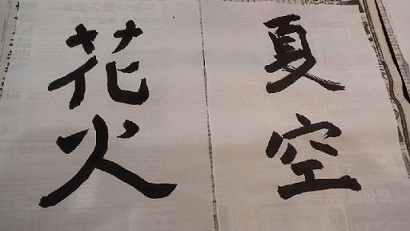 夏空
花火